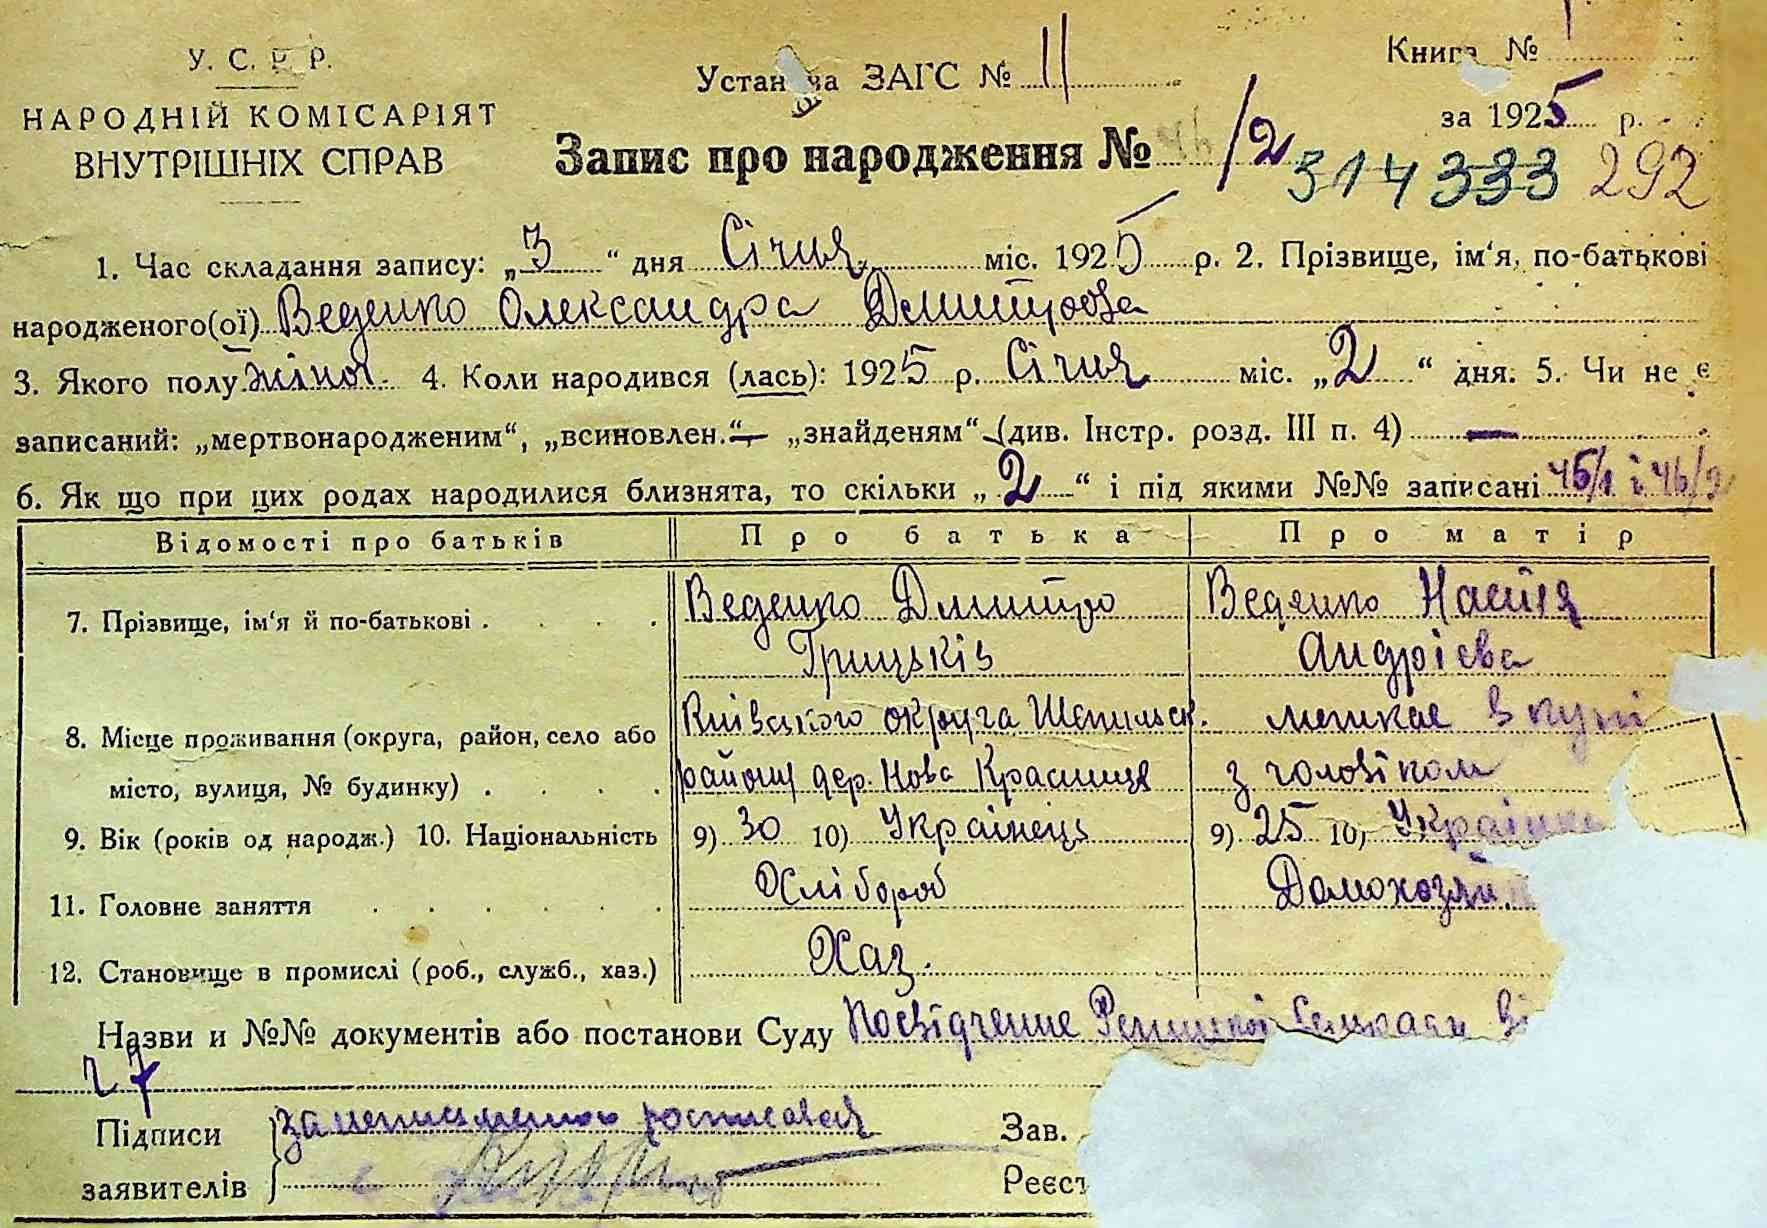 У. С. Р. Р.
НАРОДНІЙ КОМІСАРІЯТ
ВНУТРІШНІХ СПРАВ
Установа ЗАГС № 11
Книга №
за 1925 р.
Запис про народження № 46/2
314 333 292
1. Час складання запису: „3“ дня Січня міс. 1925 р. 2. Прізвище, ім‘я, по-батькові
народженого(ої) Веденко Олександра Дмитрова
3. Якого полу жіночої 4. Коли народився (лась): 1925 р. Січня міс. „2“ дня. 5. Чи не є
записаний: „мертвонародженим“, „всиновлен.“ „знайденям“ (див. Інстр. розд. III п. 4) —
6. Як що при цих родах народилися близнята, то скільки „2“ і під якими №№ записані 45/1 і 46/2
Відомості про батьків Про батька Про матір
7. Прізвище, ім‘я й по-батькові . . . . Веденко Дмитро Веденко Настя
Грицьків Андрієва
8. Місце проживання (округа, район, село або Київського округа мешкає в купі
місто, вулиця, № будинку) . . . . району дер. Нова Красниця з чоловіком
9. Вік (років од народж.) 10. Національність 9) 30 10) Українець 9) 25 10) Українка
11. Головне заняття . . . . . Хлібороб Домохозяй
12. Становище в промислі (роб., служб., хаз.) Хаз.
Назви и №№ документів або постанови Суду Посвідчення Сельради Ві
27
Підписи
заявителів
за неписьменого росписався
Зав.
Реєст